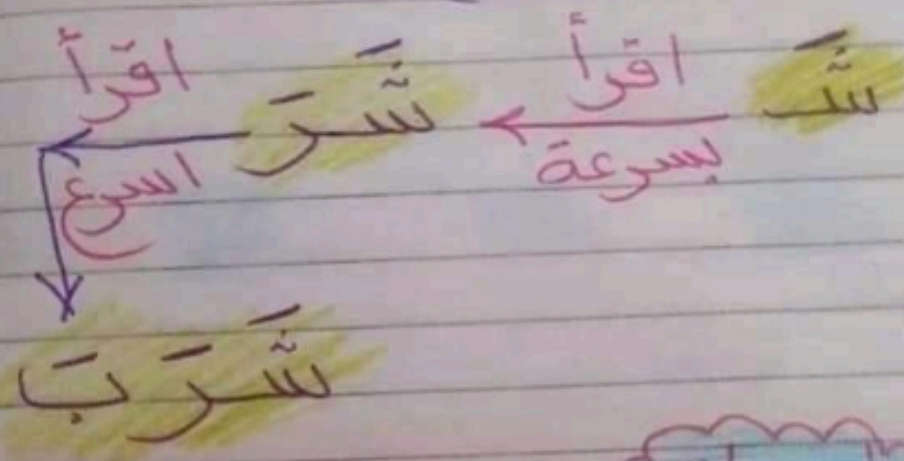 شَـ
اقرأ
بسرعة
شَـرَ
اقرأ
اسرع
شَـرَبَ